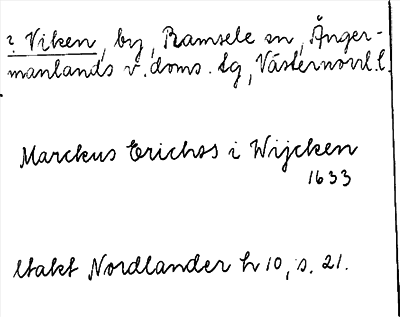 ? Viken, by, Ramsele sn, Ånger-
manlands v. doms. tg, Västernorrl. l.
Marckus Erichss i Wijcken
1633
Utakt Nordlander h 10, s. 21.